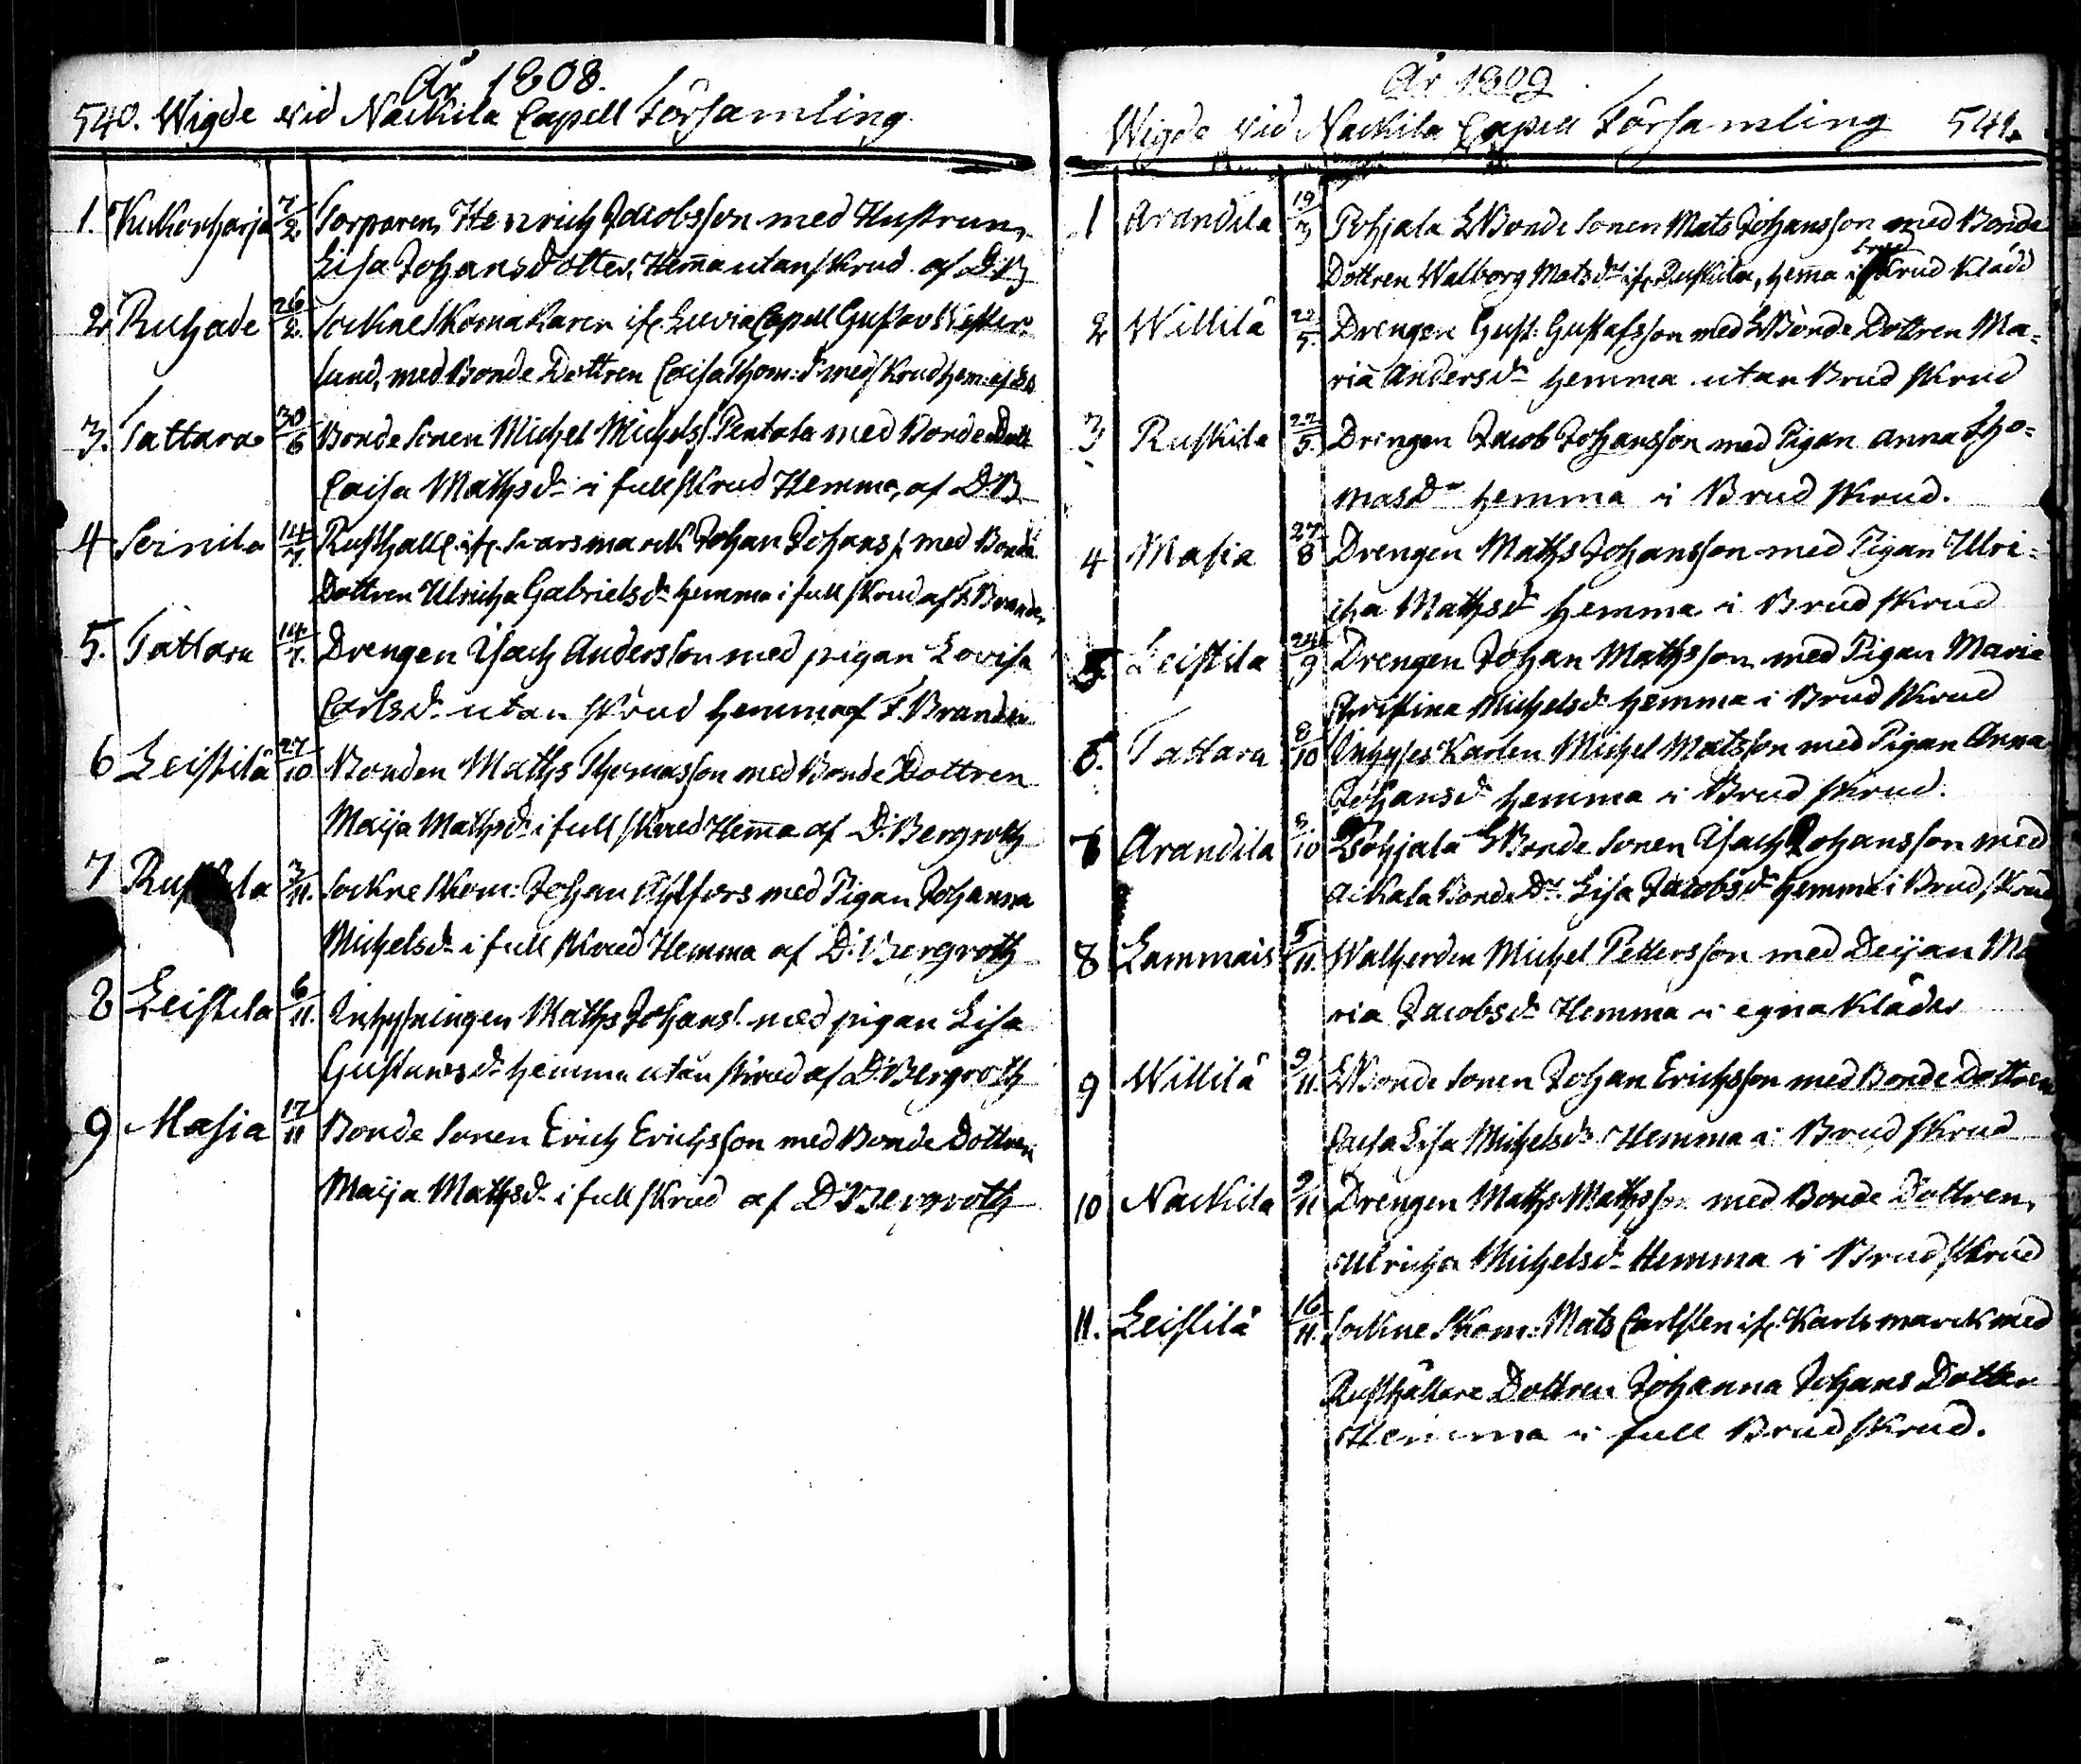 År 1808.
540. Wigde vid Nackila Capell Församling
1. Kukonharja 7/2. Torparen Henrich Jacobsson med Hustrun
Lisa Johansdotter, Hem̄a utan skrud af D:B
2. Ruhade 26/2. Sockne Skomakaren ifr. Luvia Capell Gustav Wester
lund, med Bonde Dottren Caisa Thom:dr med skrud hem: af
3. Tattara 30/6 Bonde Sonen Michel Michelss. Pentala med Bonde Dott
Caisa Mathsdr i full skrud Hemma, af D.B.
4 Soinila 14/7. Rusthåll. ifr. Svarsmarck Johan Johanss. med Bonde
Dottren Ulricha Gabrielsdr hemma i full skrud af F. Brander
5. Tattara 14/7. Drengen Isach Andersson med pigan Lovisa
Carlsdr utan skrud hemma af F. Brander
6 Leistilä 27/10 Bonden Maths Thomasson med Bonde Dottren
Maija Mathsdr i full skrud Hem̄a af D. Bergroth
7 Ruskila 3/11. Sockne Skom: Johan Ahlfors med Pigan Johanna
Michelsdr i full skrud Hemma af D. Bergroth
8 Leistila 6/11. Inhysningen Maths Johans. med pigan Lisa
Gustavsdr hemma utan skrud af D. Bergroth
9 Masia 17/11 Bonde Sonen Erich Erichsson med Bonde Dottren
Maija Mathsdr i full skrud af D. Bergroth
År 1809
Wigde vid Nackila Capell Församling 541.
1 Arandila 19/3 Pohjala Bonde Sonen Mats Johansson med Bonde
Brud
Dottren Walborg Matsdr ifr. Ruskila, hema i skrud klädd
2 Willilä 22/5. Drengen Gust: Gustafsson med Bonde Dottren Ma=
ria Andersdr hemma utan Brud skrud
3 Ruskila 22/5. Drengen Jacob Johansson med Pigan Anna Tho=
masdr hemma i Brud skrud.
4 Masia 27/8 Drengen Maths Johansson med Pigan Ulri=
cha Mathsdr hemma i Brud skrud
5. Leistila 24/9 Drengen Johan Mathsson med Pigan Maria
Christina Michelsdr hemma i Brud skrud
6. Tattara 8/10 Inhyses Karlen Michel Matsson med Pigan Anna
Johansdr hemma i Brud skrud.
7 Arandila 8/10 Pohjala Bonde Sonen Isach Johansson med
Aikala Bonde Dr. Lisa Jacobsdr hemma i Brud skrud
8 Lammais 5/11. Walherden Michel Pettersson med Deijan Ma
ria Jacobsdr Hemma i egna kläder
9 Willilä 9/11. Bonde Sonen Johan Erichsson med Bonde Dottren
Caisa Lisa Michelsdr Hemma i Brud skrud
10 Nackila 9/11 Drengen Maths Mathsson med Bonde Dottren
Ulricha Michelsdr Hemma i Brud skrud
11. Leistilä 16/11. Sockne Skom: Mats Carlsten ifr. Karlsmarck med
Rusthållare Dottren Johanna Johans Dotter
Hemma i full Brud skrud.